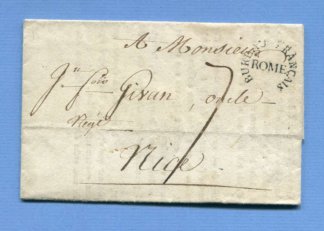 A Monsieur
BUREAU FRANÇAIS
ROME
Jn
Givan, oncle
Négt
7
Nice